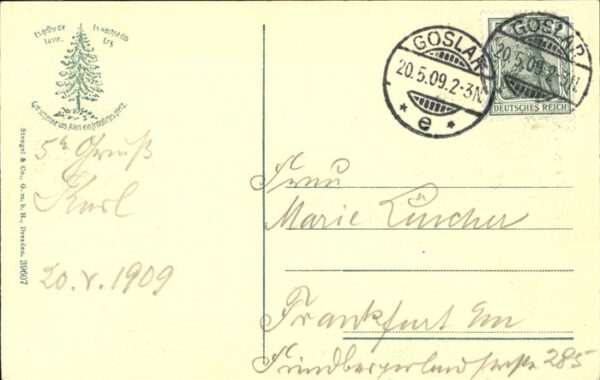 Es grüne die Tanne,
Es wachse das Erz,
Gott schenke uns Allen ein fröhliches Herz.
Stengel & Co., G. m. b. H., Dresden. 39607
Gruß
Karl
20.V.1909
GOSLAR
20.5.09.2-3N.
* e *
GOSLAR
20.5.09.2-3N.
DEUTSCHES REICH
Frau
Marie Lüscher
Frankfurt a/m
285